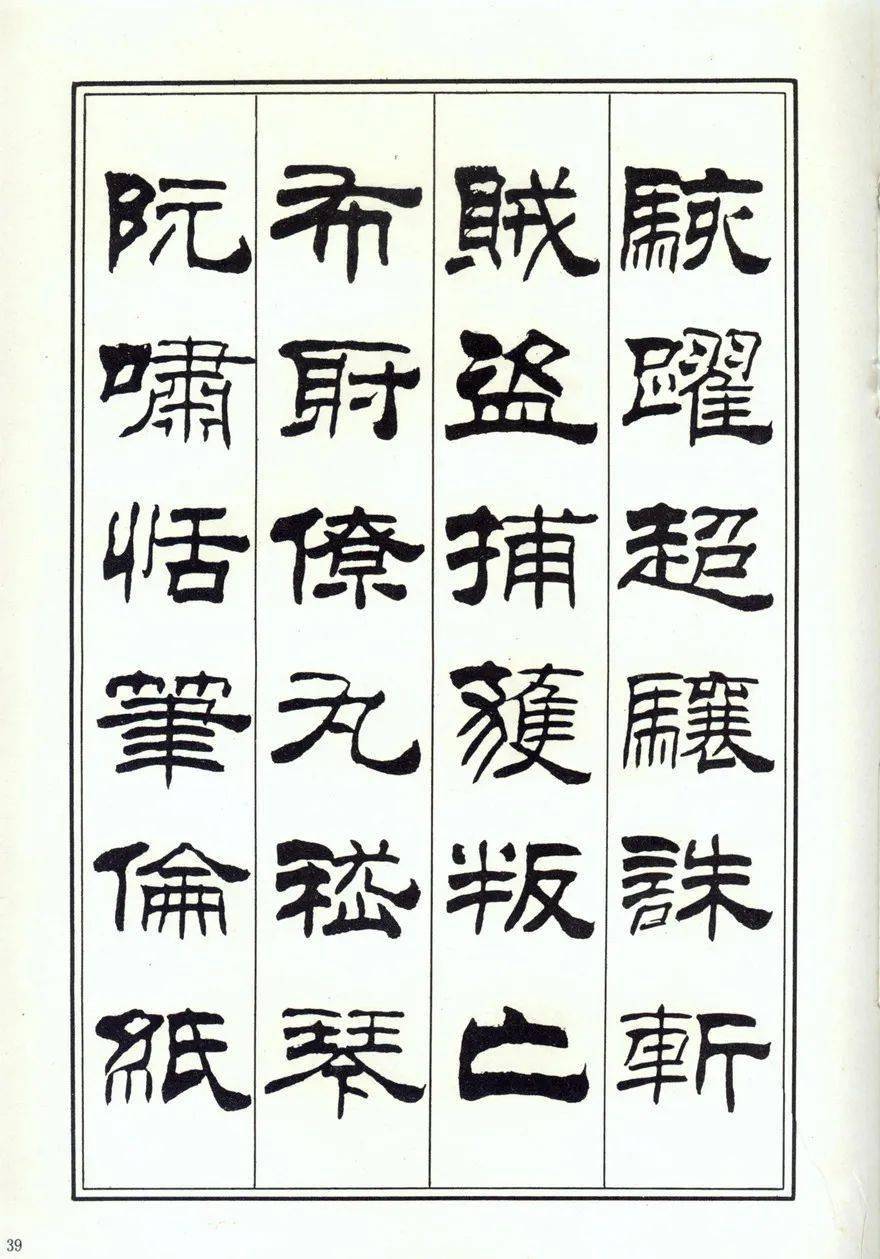 駭躍超驤誅斬
賊盜捕獲叛亡
布射僚丸嵇琴
阮嘯恬筆倫紙
39